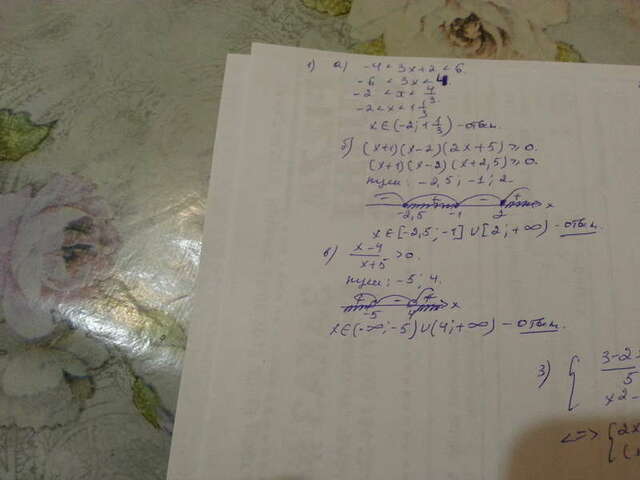 1) а) -4 < 3x+2 < 6.
-6 < 3x < 4.
-2 < x < 4/3
-2 < x < 1 1/3
x∈(-2; 1 1/3) - отв.
б) (x+1)(x-2)(2x+5) ≥ 0.
(x+1)(x-2)(x+2,5) ≥ 0.
нули: -2,5; -1; 2.
- + - + x
-2,5 -1 2
x∈[-2,5; -1]∪[2; +∞) - ответ.
в) x-4/x+5 > 0.
нули: -5; 4.
+ - + x
-5 4
x∈(-∞; -5)∪(4; +∞) - ответ.
3) { 3-2
5
x²-
<=> { 2x
(